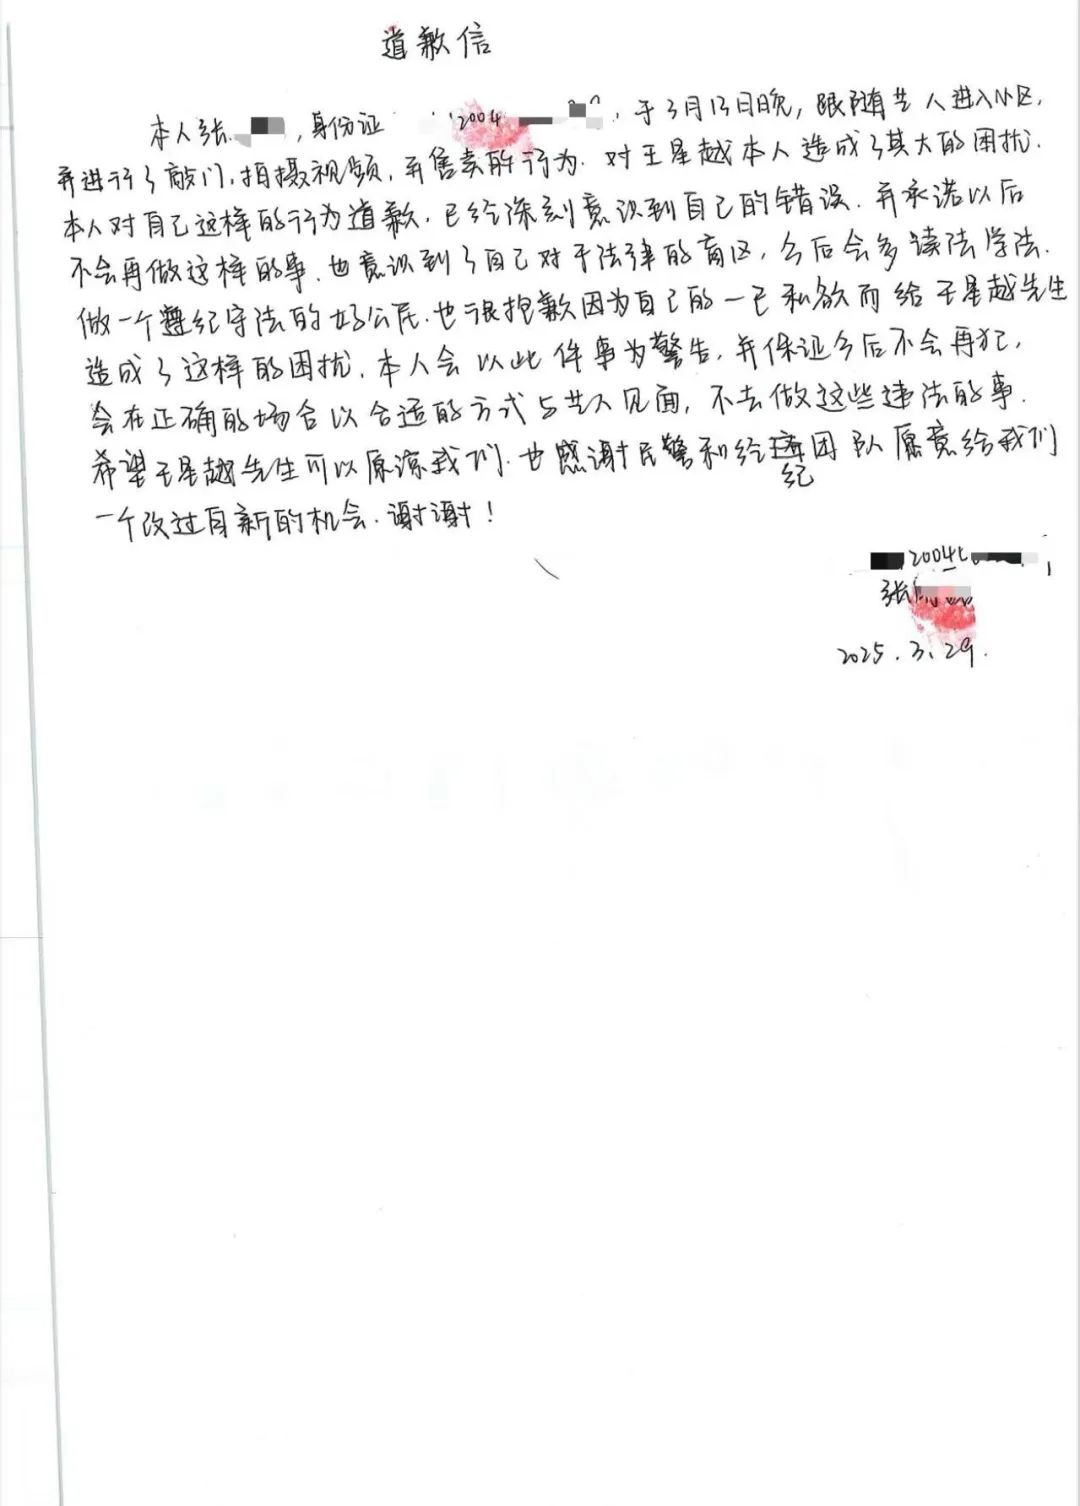 道歉信
本人张 ，身份证 2004 ，于3月13日晚，跟随艺人进入小区，
并进行了敲门，拍摄视频，并售卖的行为．对王星越本人造成了其大的困扰．
本人对自己这样的行为道歉．已经深刻意识到自己的错误．并承诺以后
不会再做这样的事．也意识到了自己对于法律的盲区，今后会多读法学法．
做一个遵纪守法的好公民．也很抱歉因为自己的一己私欲而给王星越先生
造成了这样的困扰．本人会以此件事为警告，并保证今后不会再犯，
会在正确的场合以合适的方式与艺人见面，不去做这些违法的事．
希望王星越先生可以原谅我们．也感谢民警和经纪团队愿意给我们
一个改过自新的机会．谢谢！
2004
张
2025.3.29.